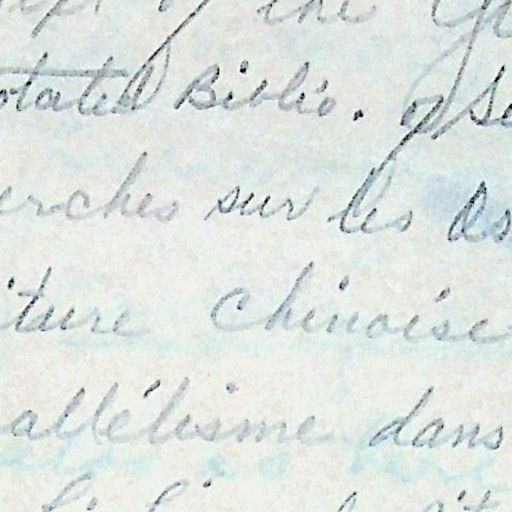 of the
otated Biblio. of
erches sur les Os
iture chinoise
allélisme dans